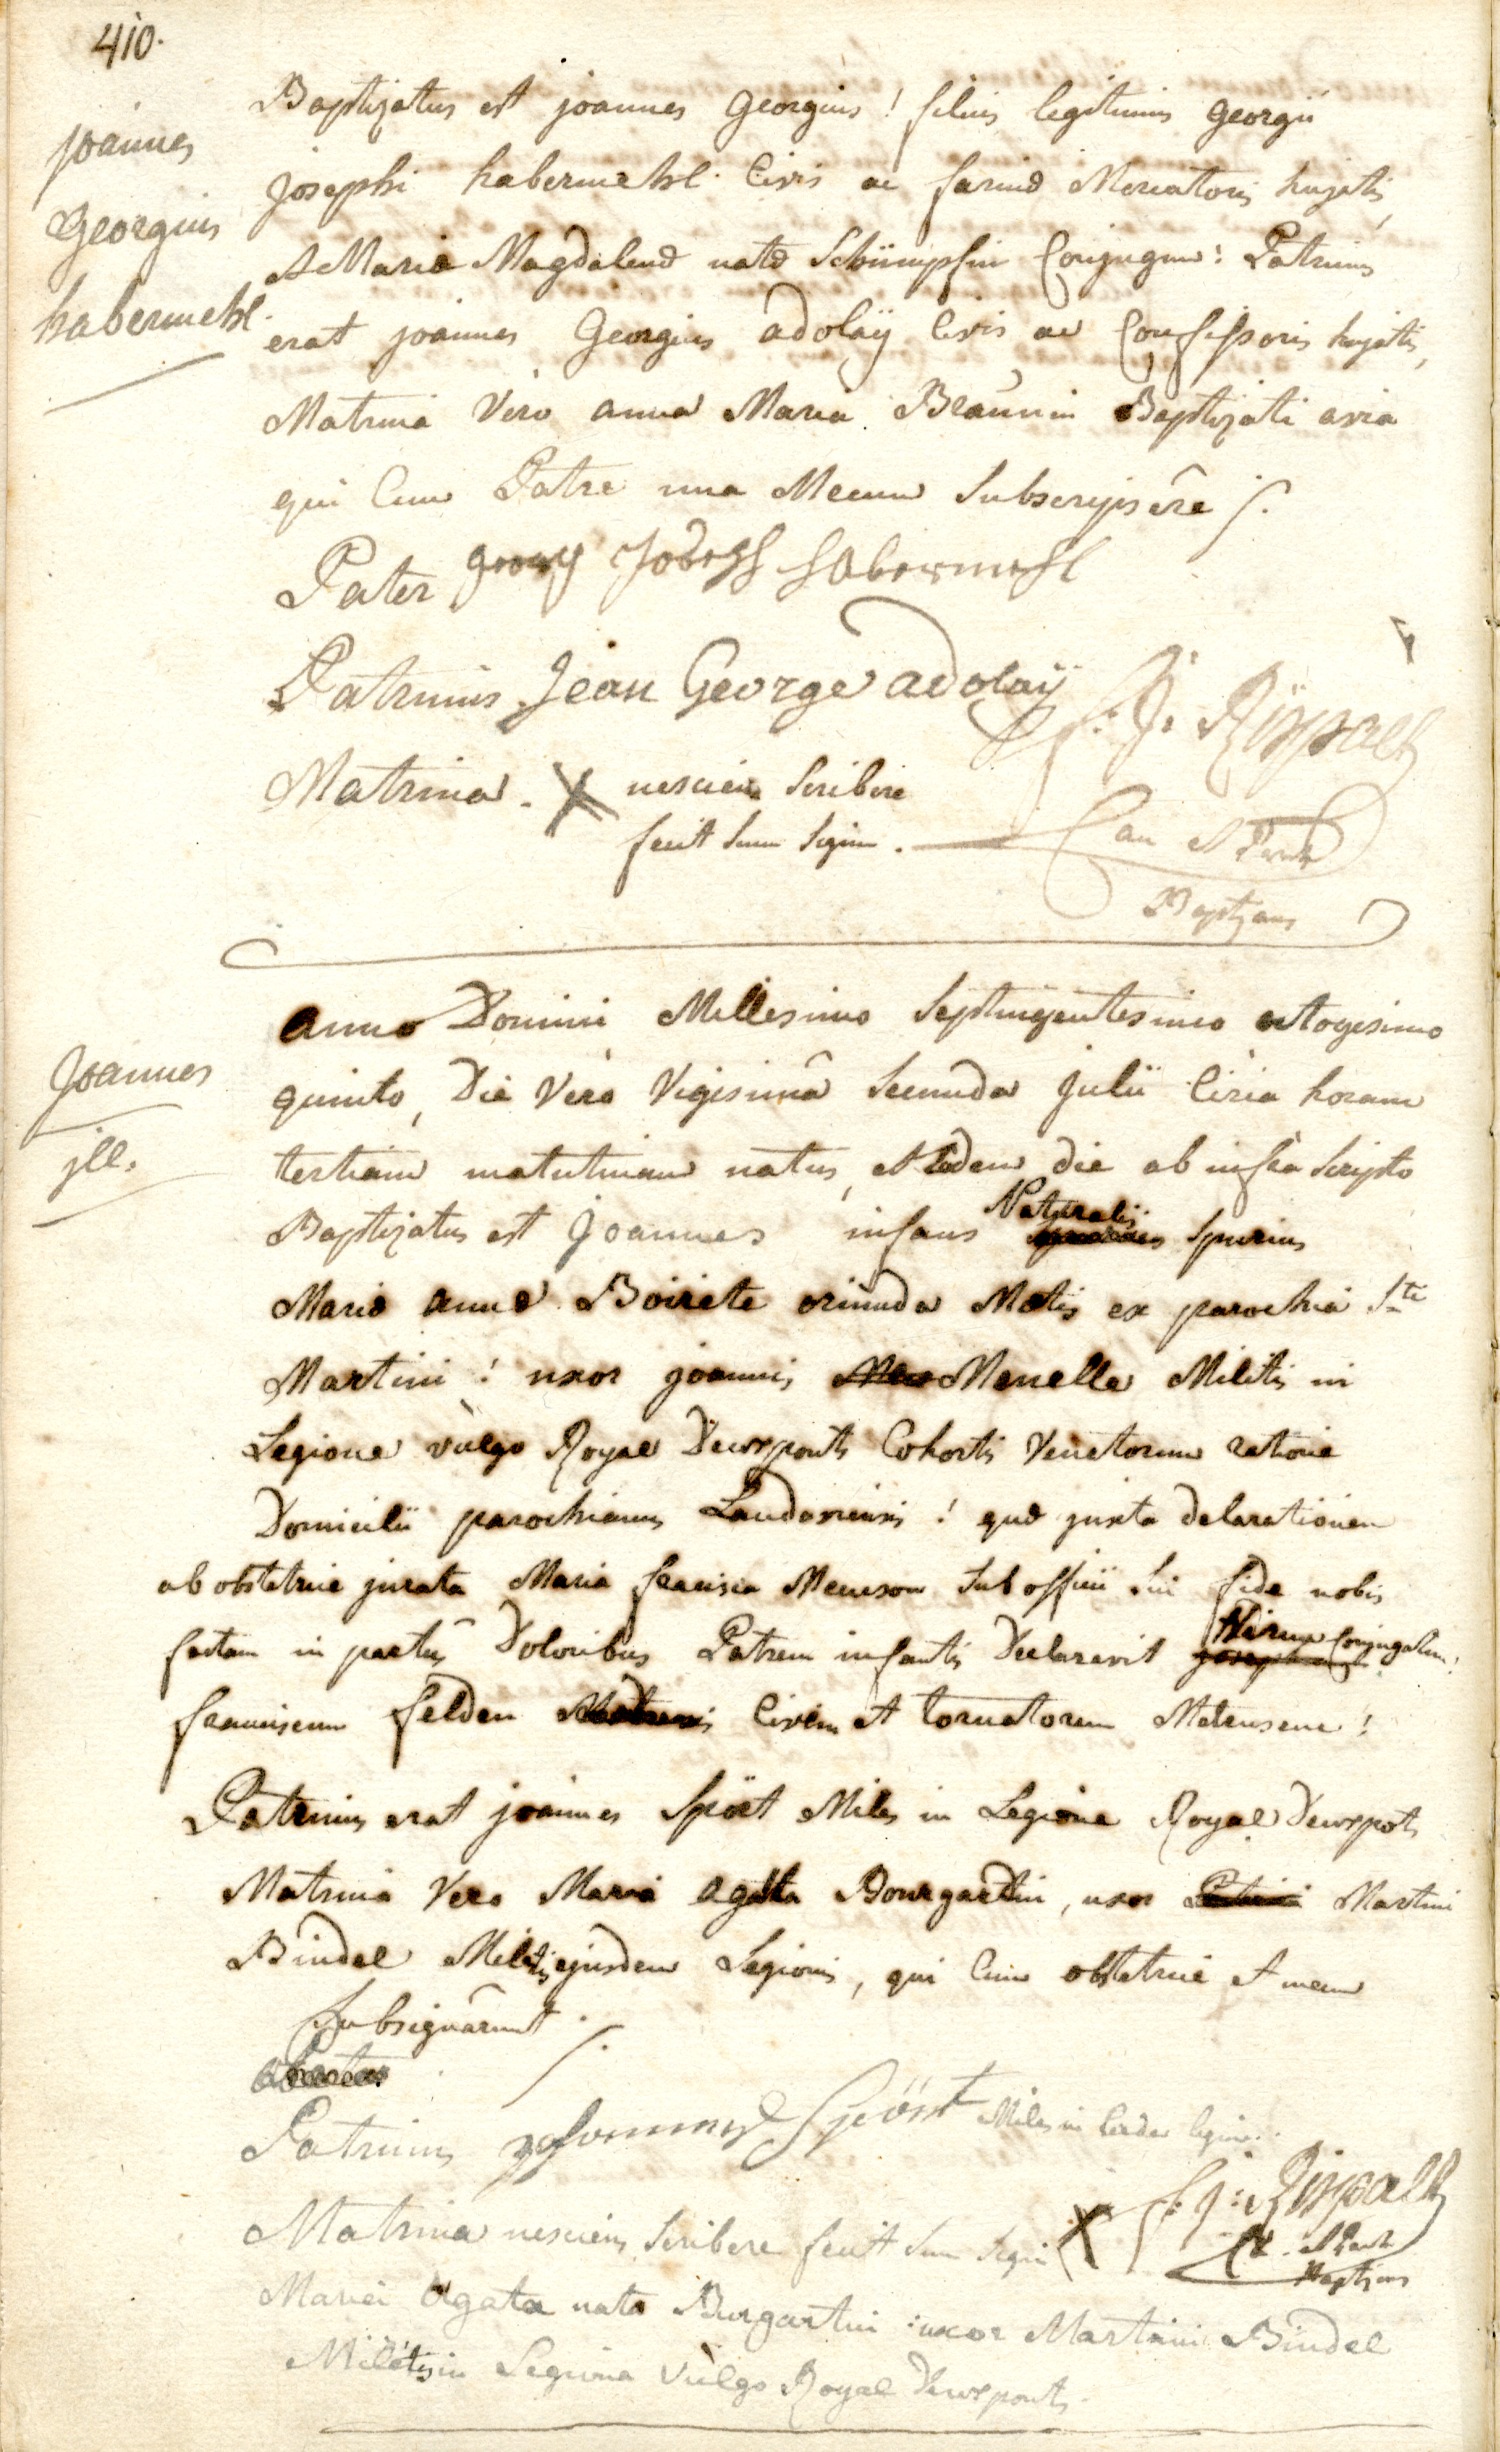 410.
Baptizatus est joannes Georgius ! filius legitimus Georgii
joannes
Josephi habermehl. Civis ac farinæ Mercatoris hujatis,
Georgius
et Mariæ Magdalenæ natæ Schümpfin Conjugum : Patrinus
habermehl.
erat joannes Georgius adolaÿ Civis ac Confessoris hujatis,
Matrina Vero anna Maria Braunin Baptizati avia
qui Cum Patre una Mecum Subscripsêre
Pater Georg Joseph Habermehl
Patrinus Jean George adolaÿ
Matrina. X nesciens Scribere
fecit Suum Signum.
Baptizans
anno Domini Millesimo Septingentesimo octogesimo
Joannes
quinto, Die Vero Vigesimâ Secunda Julii Circa horam
ill.
tertiam matutinam natus, et Eadem die ab infra Scripto
Baptizatus est Joannes infans Naturalis Spurius
Mariæ annæ Boirete oriunda Metis ex parochia Sti
Martini ! uxor joannis Menelle Militis in
Legione vùlgo Royal Deuxponts Cohortis Venatorum ratione
Domicilii parochianus Landaviensis ! quæ juxta Delarationem
ab obstetrice jurata Maria francisca Sub officii Sui fide nobis
factam in partûs Doloribus Patrem infantis Declaravit Virum Conjugatum !
franciscum felden Civem et tornatorem Metensem !
Patrinus erat joannes Spöet Miles in Legione Royal Deuxpots
Matrina Vero Maria agatta Bourgartin, uxor Martini
Bindel Militis ejusdem Legionis, qui Cum obstetrice et mecum
Subsignârunt.
Patrinus Spöst Miles in
Matrina nesciens Scribere fecit Suum Signum X
Baptizans
Maria Agata nata Burgartin : uxor Martini Bindel
Militis in Legiona Vùlgo Royal Deuxponts.